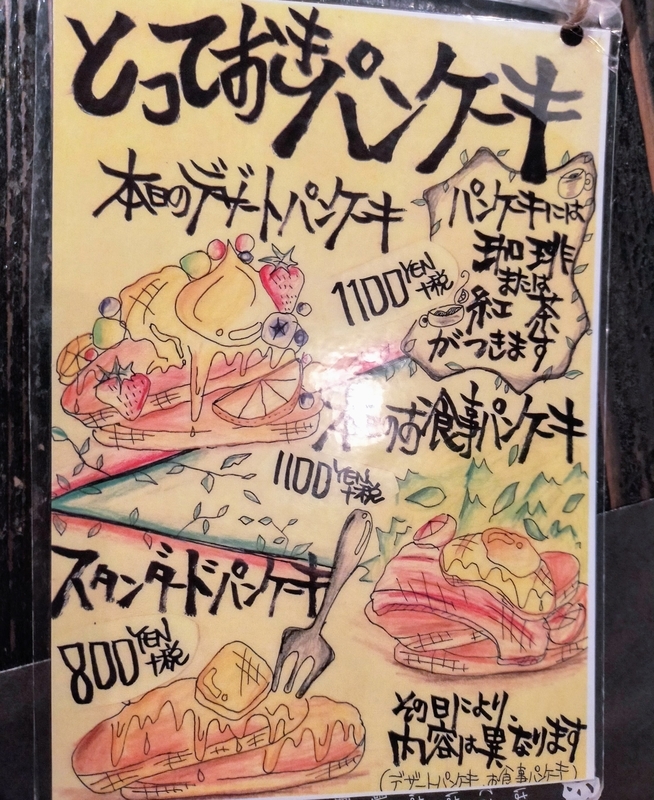 とっておきパンケーキ
本日のデザートパンケーキ
1100YEN
+税
パンケーキには
珈琲
または
紅茶
がつきます
本日のお食事パンケーキ
1100YEN
+税
スタンダードパンケーキ
800YEN
+税
その日により、
内容は異なります
(デザートパンケーキ お食事パンケーキ)